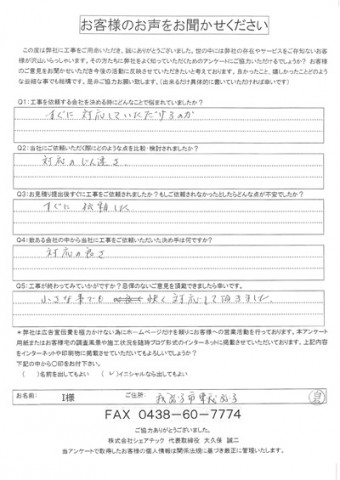 お客様のお声をお聞かせください
この度は弊社に工事をご用命いただき、誠にありがとうございました。世の中には弊社の存在やサービスをご存知ないお客
様が沢山いらっしゃいます。その方たちに弊社をよく知っていただくためのアンケートにご協力いただけるでしょうか？ お客様
のご意見をお聞かせいただき今後の活動に反映させていただきたいと考えております。良かったこと、嬉しかったことどのよう
な些細な事でも結構です。是非ご協力お願い致します。（出来るだけ具体的に書いていただければ幸いです）
Q1：工事を依頼する会社を決める時にどんなことで悩まれていましたか？
すぐに 対応していただけるのか
Q2：当社にご依頼いただく際にどのような点を比較・検討されましたか？
対応の 速さ
Q3：お見積り提出後すぐに工事をご依頼されましたか？もしご依頼されなかったとしたらどんな点が不安でしたか？
すぐに 依頼した
Q4：数ある会社の中から当社に工事をご依頼いただいた決め手は何ですか？
対応の良さ
Q5：工事が終わってみていかがですか？忌憚のないご意見を頂戴できましたら幸いです。
小さな事でも 快く対応して頂きました
＊弊社は広告宣伝費を極力かけない為にホームページだけを頼りにお客様への営業活動を行っております。本アンケート
用紙またはお客様宅の調査風景や施工状況を随時ブログ形式でのインターネットに掲載させていただいております。上記内容
をインターネットや印刷物に掲載させていただいてもよろしいでしょうか？
下記の中から○印をお付下さい。
（　）名前を出してもよい　（✓）イニシャルなら出してもよい
お名前： I様 ご住所： 我孫子市東我孫子
FAX 0438-60-7774
ご協力ありがとうございました。
株式会社シェアテック 代表取締役 大久保 誠二
当アンケートで取得したお客様の個人情報は関係法規に基づき厳正に管理いたします。